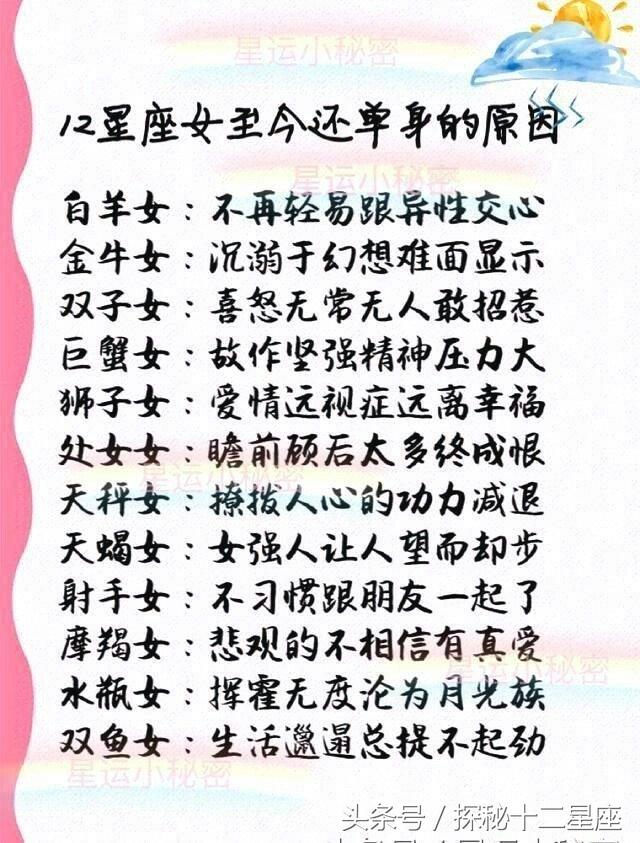 星运小秘密
12星座女至今还单身的原因
星运小秘密
白羊女：不再轻易跟异性交心
金牛女：沉溺于幻想难面显示
双子女：喜怒无常无人敢招惹
巨蟹女：故作坚强精神压力大
狮子女：爱情远视症远离幸福
处女女：瞻前顾后太多终成恨
星运小秘密
天秤女：撩拨人心的功力减退
天蝎女：女强人让人望而却步
射手女：不习惯跟朋友一起了
摩羯女：悲观的不相信有真爱
星运小秘密
水瓶女：挥霍无度沦为月光族
双鱼女：生活邋遢总提不起劲
星运小秘密
头条号/探秘十二星座